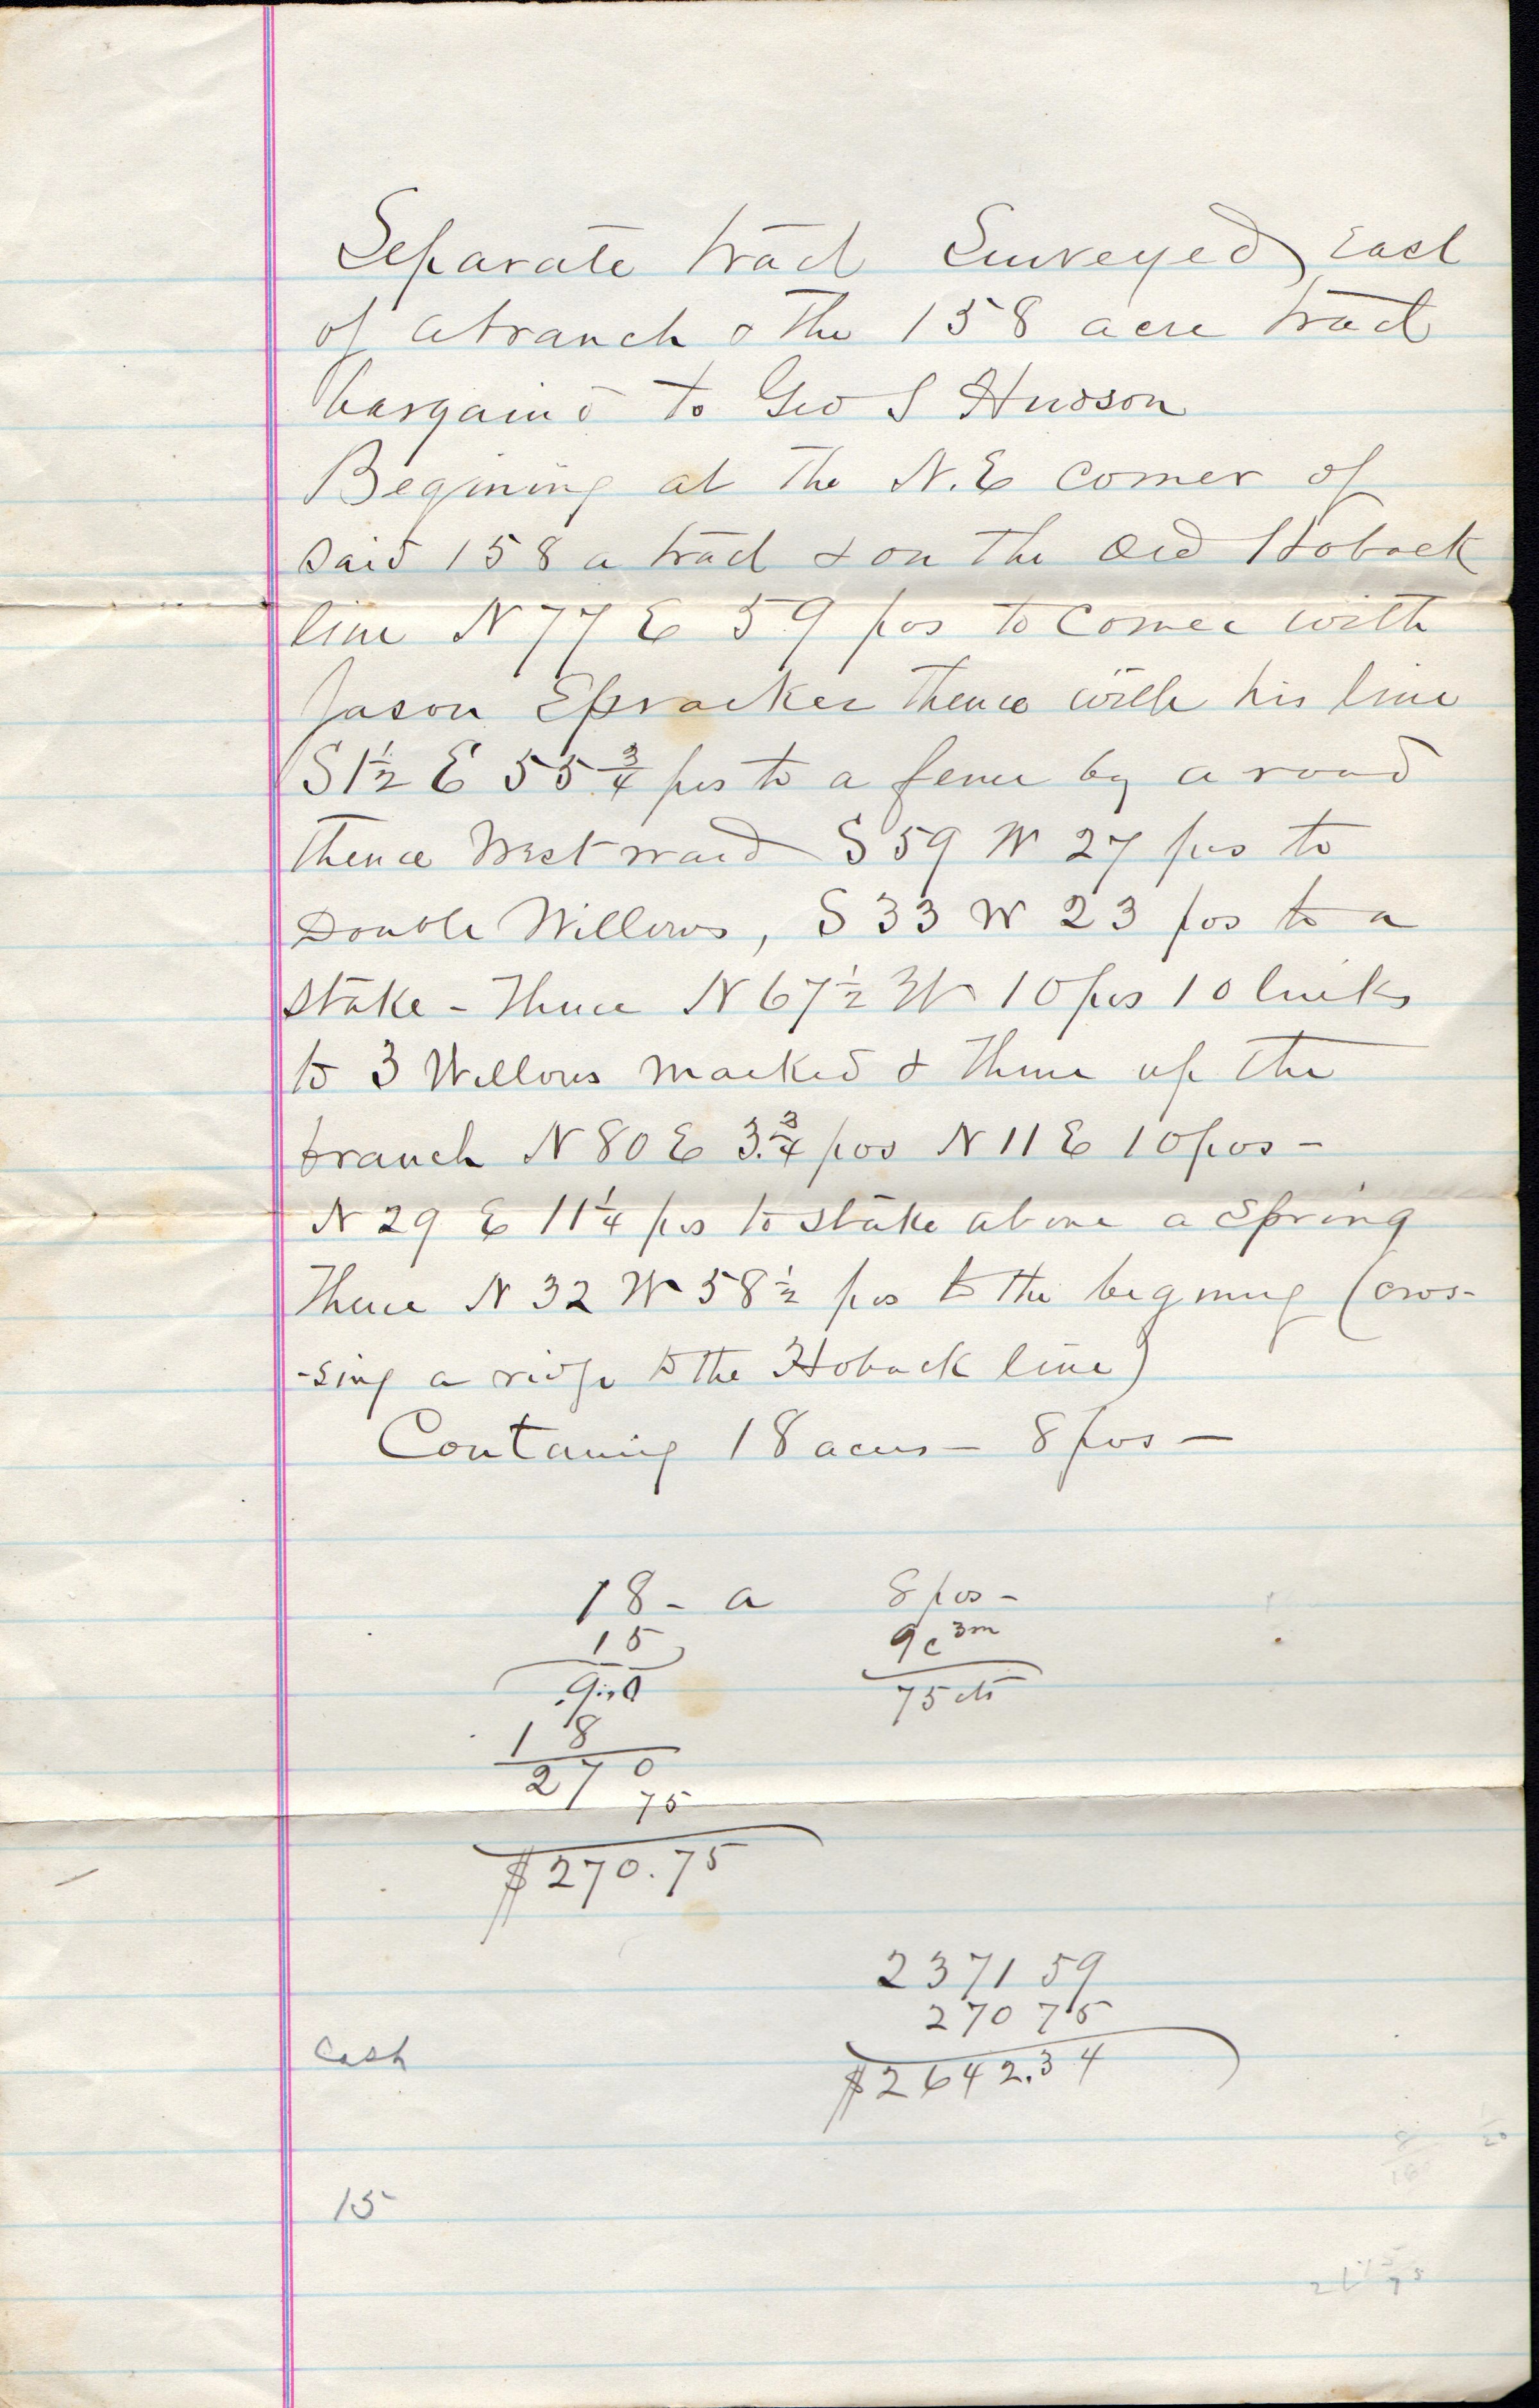 Separate tract Surveyed East
of a branch & the 158 acre tract
bargain'd to Geo S Hudson
Begining at the N.E corner of
said 158 a tract & on the Old Hoback
line N 77 E 59 pos to corner with
Jason Epracker thence with his line
S 1½ E 55¾ pos to a fence by a road
thence Westward S 59 W 27 pos to
Double Willows, S 33 W 23 pos to a
stake - Thence N 67½ W 10 pos 10 links
to 3 Willows marked & thence up the
branch N 80 E 3.¾ pos N 11 E 10 pos -
N 29 E 11¼ pos to stake above a Spring
Thence N 32 W 58½ pos to the begining (cros-
-sing a ridge to the Hoback line)
Containing 18 acres - 8 pos -
18 - a 8 pos -
15 9c 3m
90 75 cts
18
270
75
$270.75
2371 59
270 75
$2642.34
Cash
15